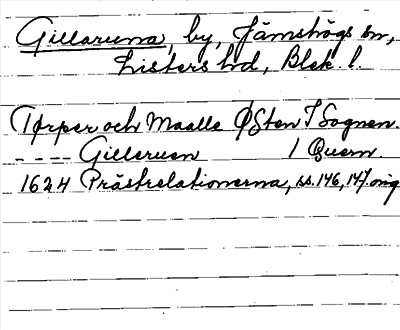 Gillaruna, by, Jämshögs sn,
Listers hd, Blek. l.
Torper och Maalle Østen I Sognen.
---- Gillaruen 1 Quern.
1624 Prästrelationerna, ss. 146, 147. orig